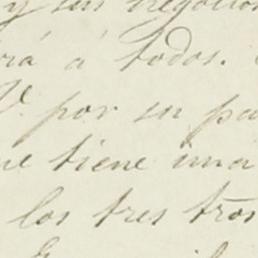 y sus negocios
rá á todos.
V. por su pa
ne tiene una
los tres tros